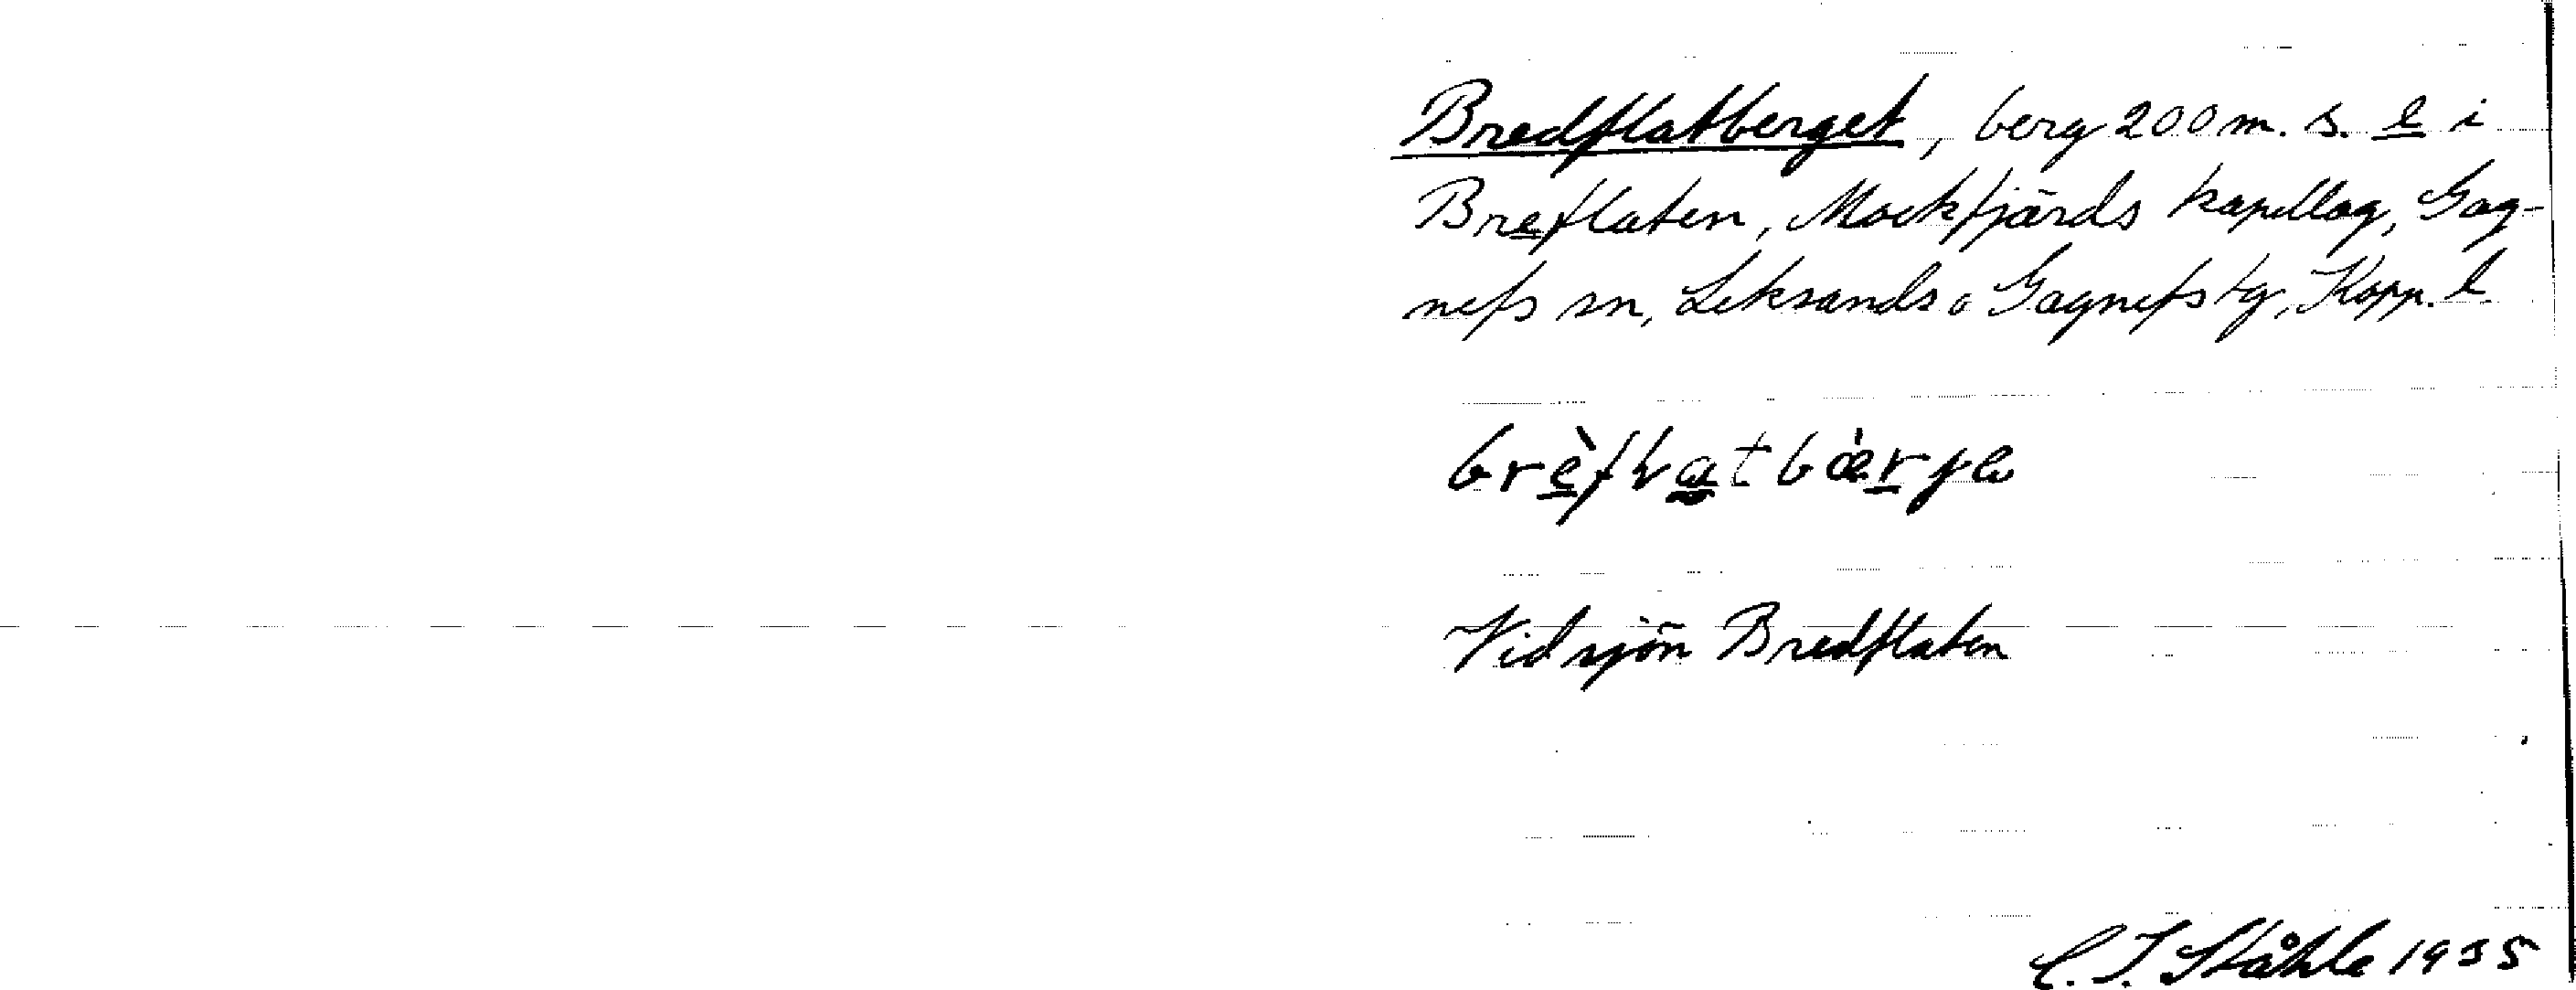 Bredflatberget, berg 200 m. s. l i
Breflaten, Mockfjärds kapellag, Gag-
nefs sn, Leksands o Gagnefs tg, Kopp. l.
brèfⱡatbæ̀rje
Vid sjön Bredflaten
C. I. Ståhle 1935